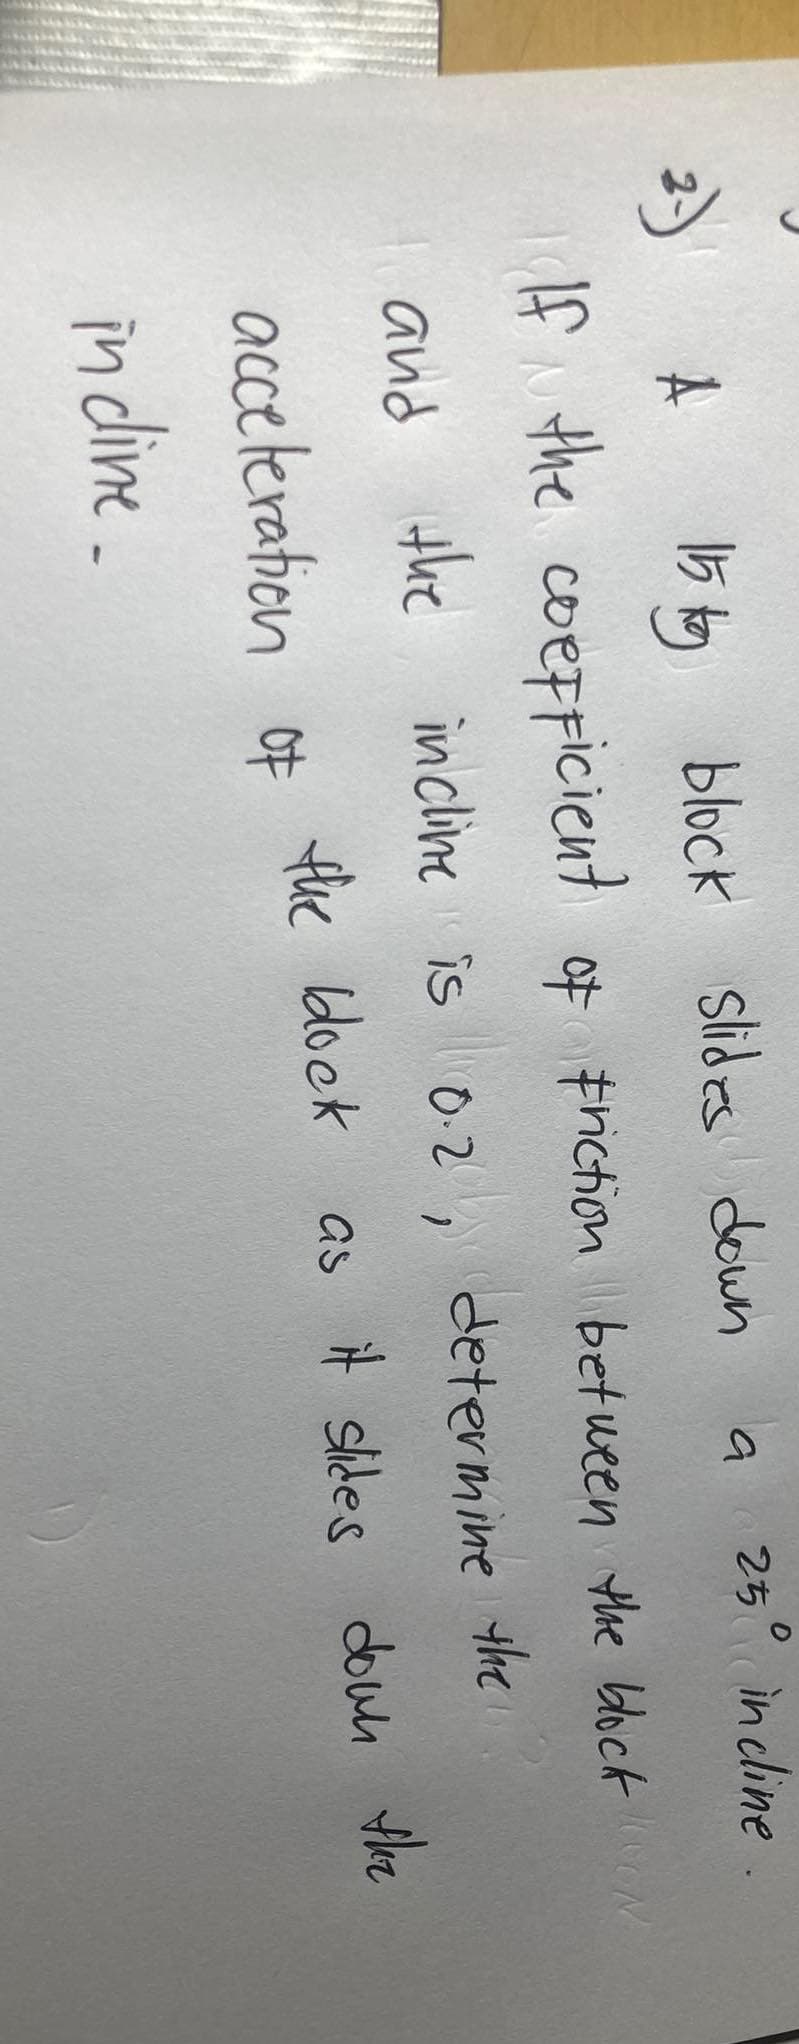 2.) A 15 kg block slides down a 25° incline.
If the coefficient of friction between the block
and the incline is 0.2, determine the
acceleration of the block as it slides down the
incline.